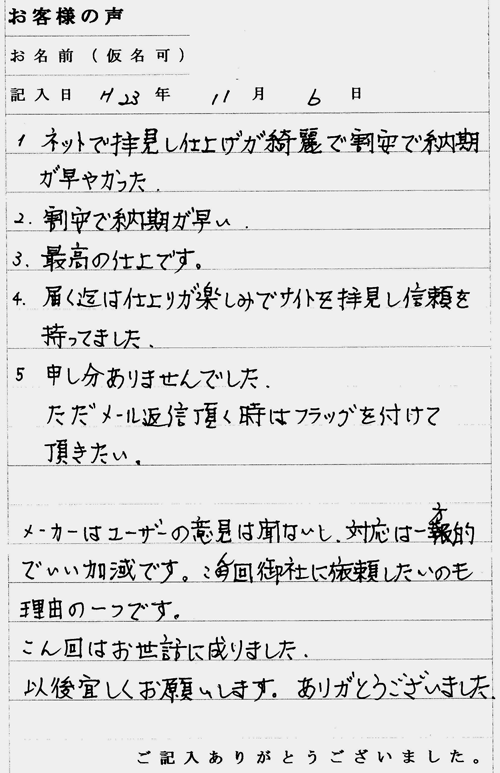 お客様の声
お名前（仮名可）
記入日 H23 年 11 月 6 日
1 ネットで拝見し仕上げが綺麗で割安で納期
が早やかった.
2. 割安で納期が早い.
3. 最高の仕上です。
4. 届く迄は仕上りが楽しみでサイトを拝見し信頼を
持ってました.
5 申し分ありませんでした.
ただメール返信頂く時はフラッグを付けて
頂きたい.
メーカーはユーザーの意見は聞ないし、対応は一方的
でいい加減です。今回御社に依頼したいのも
理由の一つです。
こん回はお世話に成りました.
以後宜しくお願いします。ありがとうございました.
ご記入ありがとうございました。